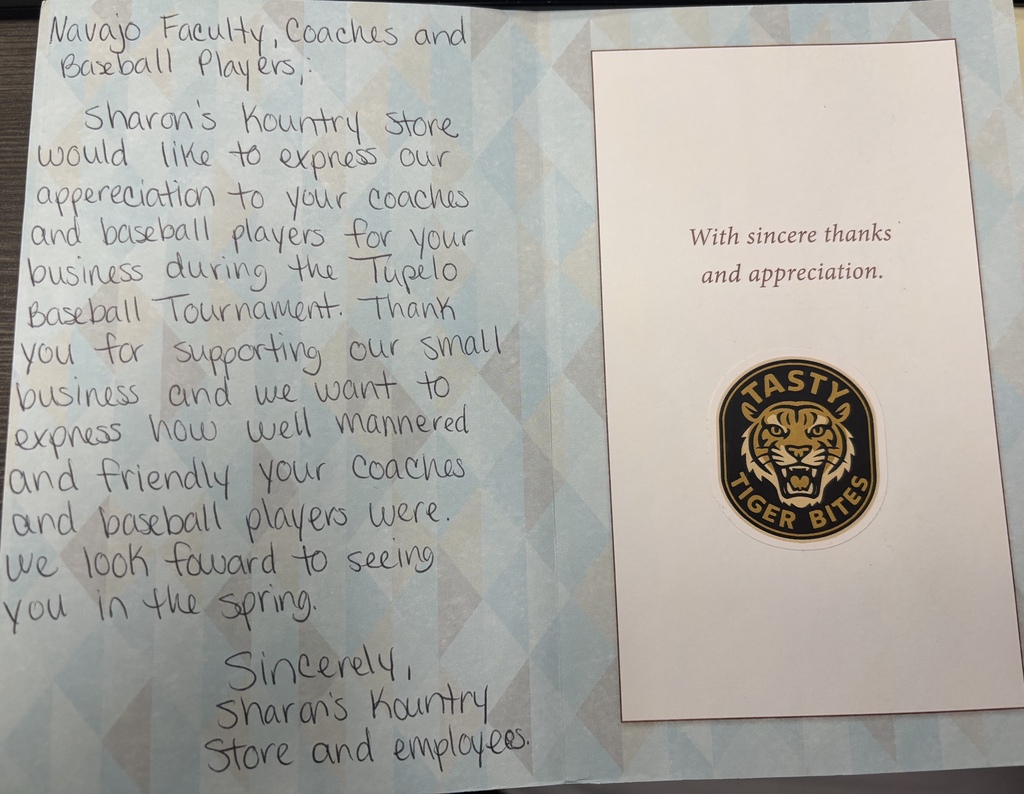 Navajo Faculty, Coaches and
Baseball Players,:
Sharon's Kountry Store
would like to express our
appereciation to your coaches
and baseball players for your
business during the Tupelo
Baseball Tournament. Thank
you for supporting our small
business and we want to
express how well mannered
and friendly your coaches
and baseball players were.
We look foward to seeing
you in the spring.
Sincerely,
Sharon's Kountry
Store and employees.
With sincere thanks
and appreciation.
TASTY
TIGER BITES